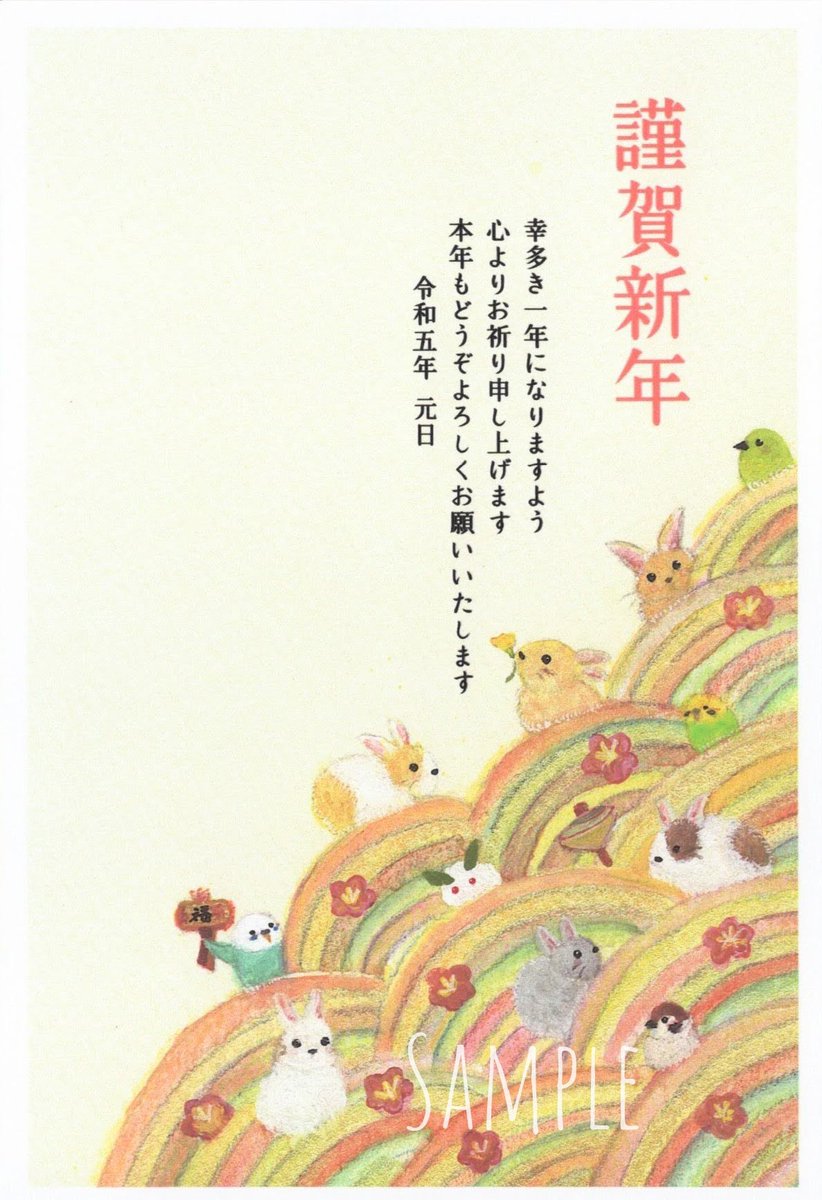 謹賀新年
幸多き一年になりますよう
心よりお祈り申し上げます
本年もどうぞよろしくお願いいたします
令和五年 元日
福
SAMPLE